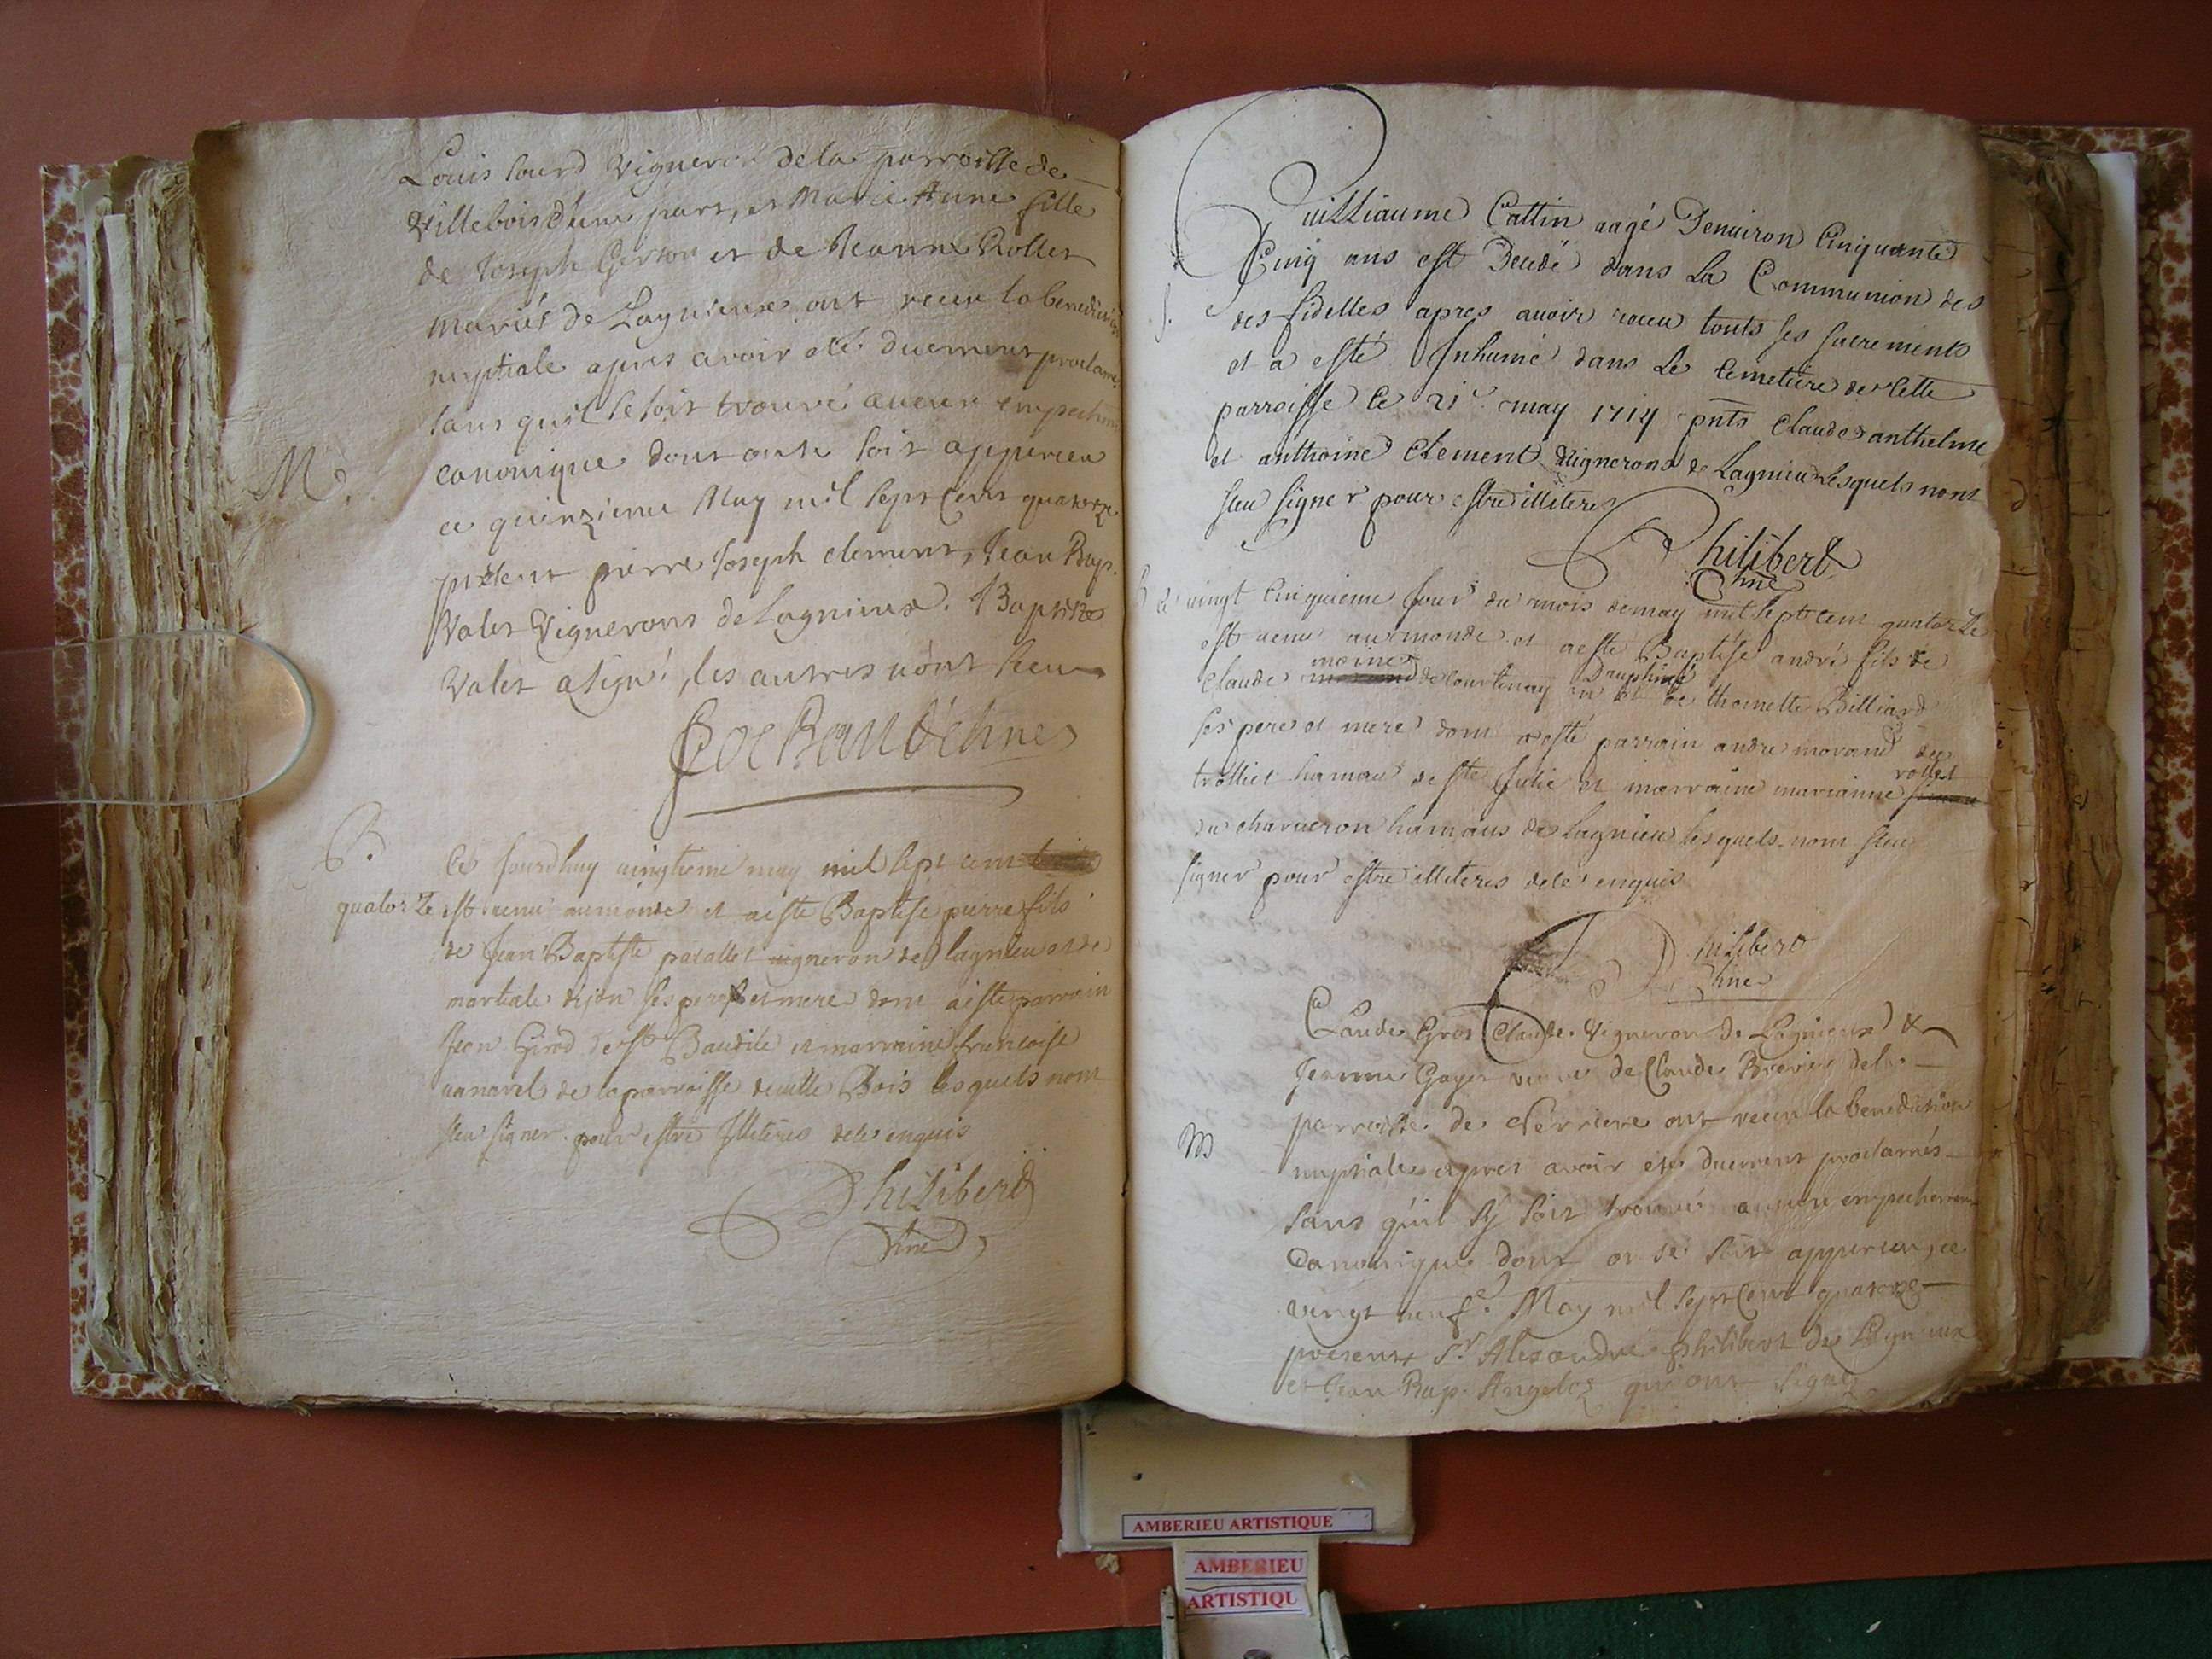 Louis sourd Vigneron dela parroisse de
Villebois d'une part, et Marie Anne fille
de Joseph Gerson et de Jeanne Rollet
mariés de Lagnieux ont receu la benediction
nuptiale apres avoir eté duement proclamés
sans qu'il se soit trouvé aucun empechem
canonique dont on se soit apperceu
M.
ce quinzieme May mil sept cent quatorze
present pierre Joseph clement, Jean Bap.
Valet Vignerons de Lagnieux. Baptiste
Valet a signé, les autres n'ont sceu
B.
Ce jourdhuy vingtieme may mil sept cent
quatorze est venu au monde et a este Baptise pierre fils
de Jean Baptiste vigneron de lagnieu et de
martiale dijon ses pere et mere dont a este parrain
Jean Girod de st Baudile et marraine francoise
de la parroisse de ville Bois lesquels nont
sceu signer pour estre Illiteres de ce enquis
Philibert
vire
Guilliaume Cattin aagé Denuiron Cinquante
Cinq ans est Decedé dans La Communion des
des fidelles apres auoir receu touts ses sacrements
et a esté Inhumé dans Le Cemetiere de Cette
parroisse le 21e may 1714 pnts Claude anthelme
et anthoine Clement Vignerons de Lagnieu Lesquels nont
sceu signer pour estre illiteres
Philibert
vire
Ce vingt Cinquieme jour du mois de may mil sept cent quatorze
est venu au monde et a este Baptisé andré fils de
moine
Dauphiné
Claude de Courtenay en et de thoinette Billiard
ses pere et mere dont a esté parrain andre morand de
rollet
trolliet hamau de ste Julie et marraine marianne
du charueron hamaus de lagnieu lesquels nont sceu
signer pour estre illiteres de ce enquis
Philibert
vire
Claude Gros Claude Vigneron de Lagnieux &
Jeanne Gayet veuve de Claude Brevir de la
parroisse de Serriere ont receu la benediction
M
nuptiale apres avoir eté duement proclamés
sans qu'il sy soit trouvé aucun empechement
Canonique dont on se soit apperceu, ce
vingt neufe. May mil sept cent quatorze
presents Sr. Alexandre philibert de Lagnieux
et Jean Bap. Angelot qui ont signez
AMBERIEU ARTISTIQUE
AMBERIEU
ARTISTIQU